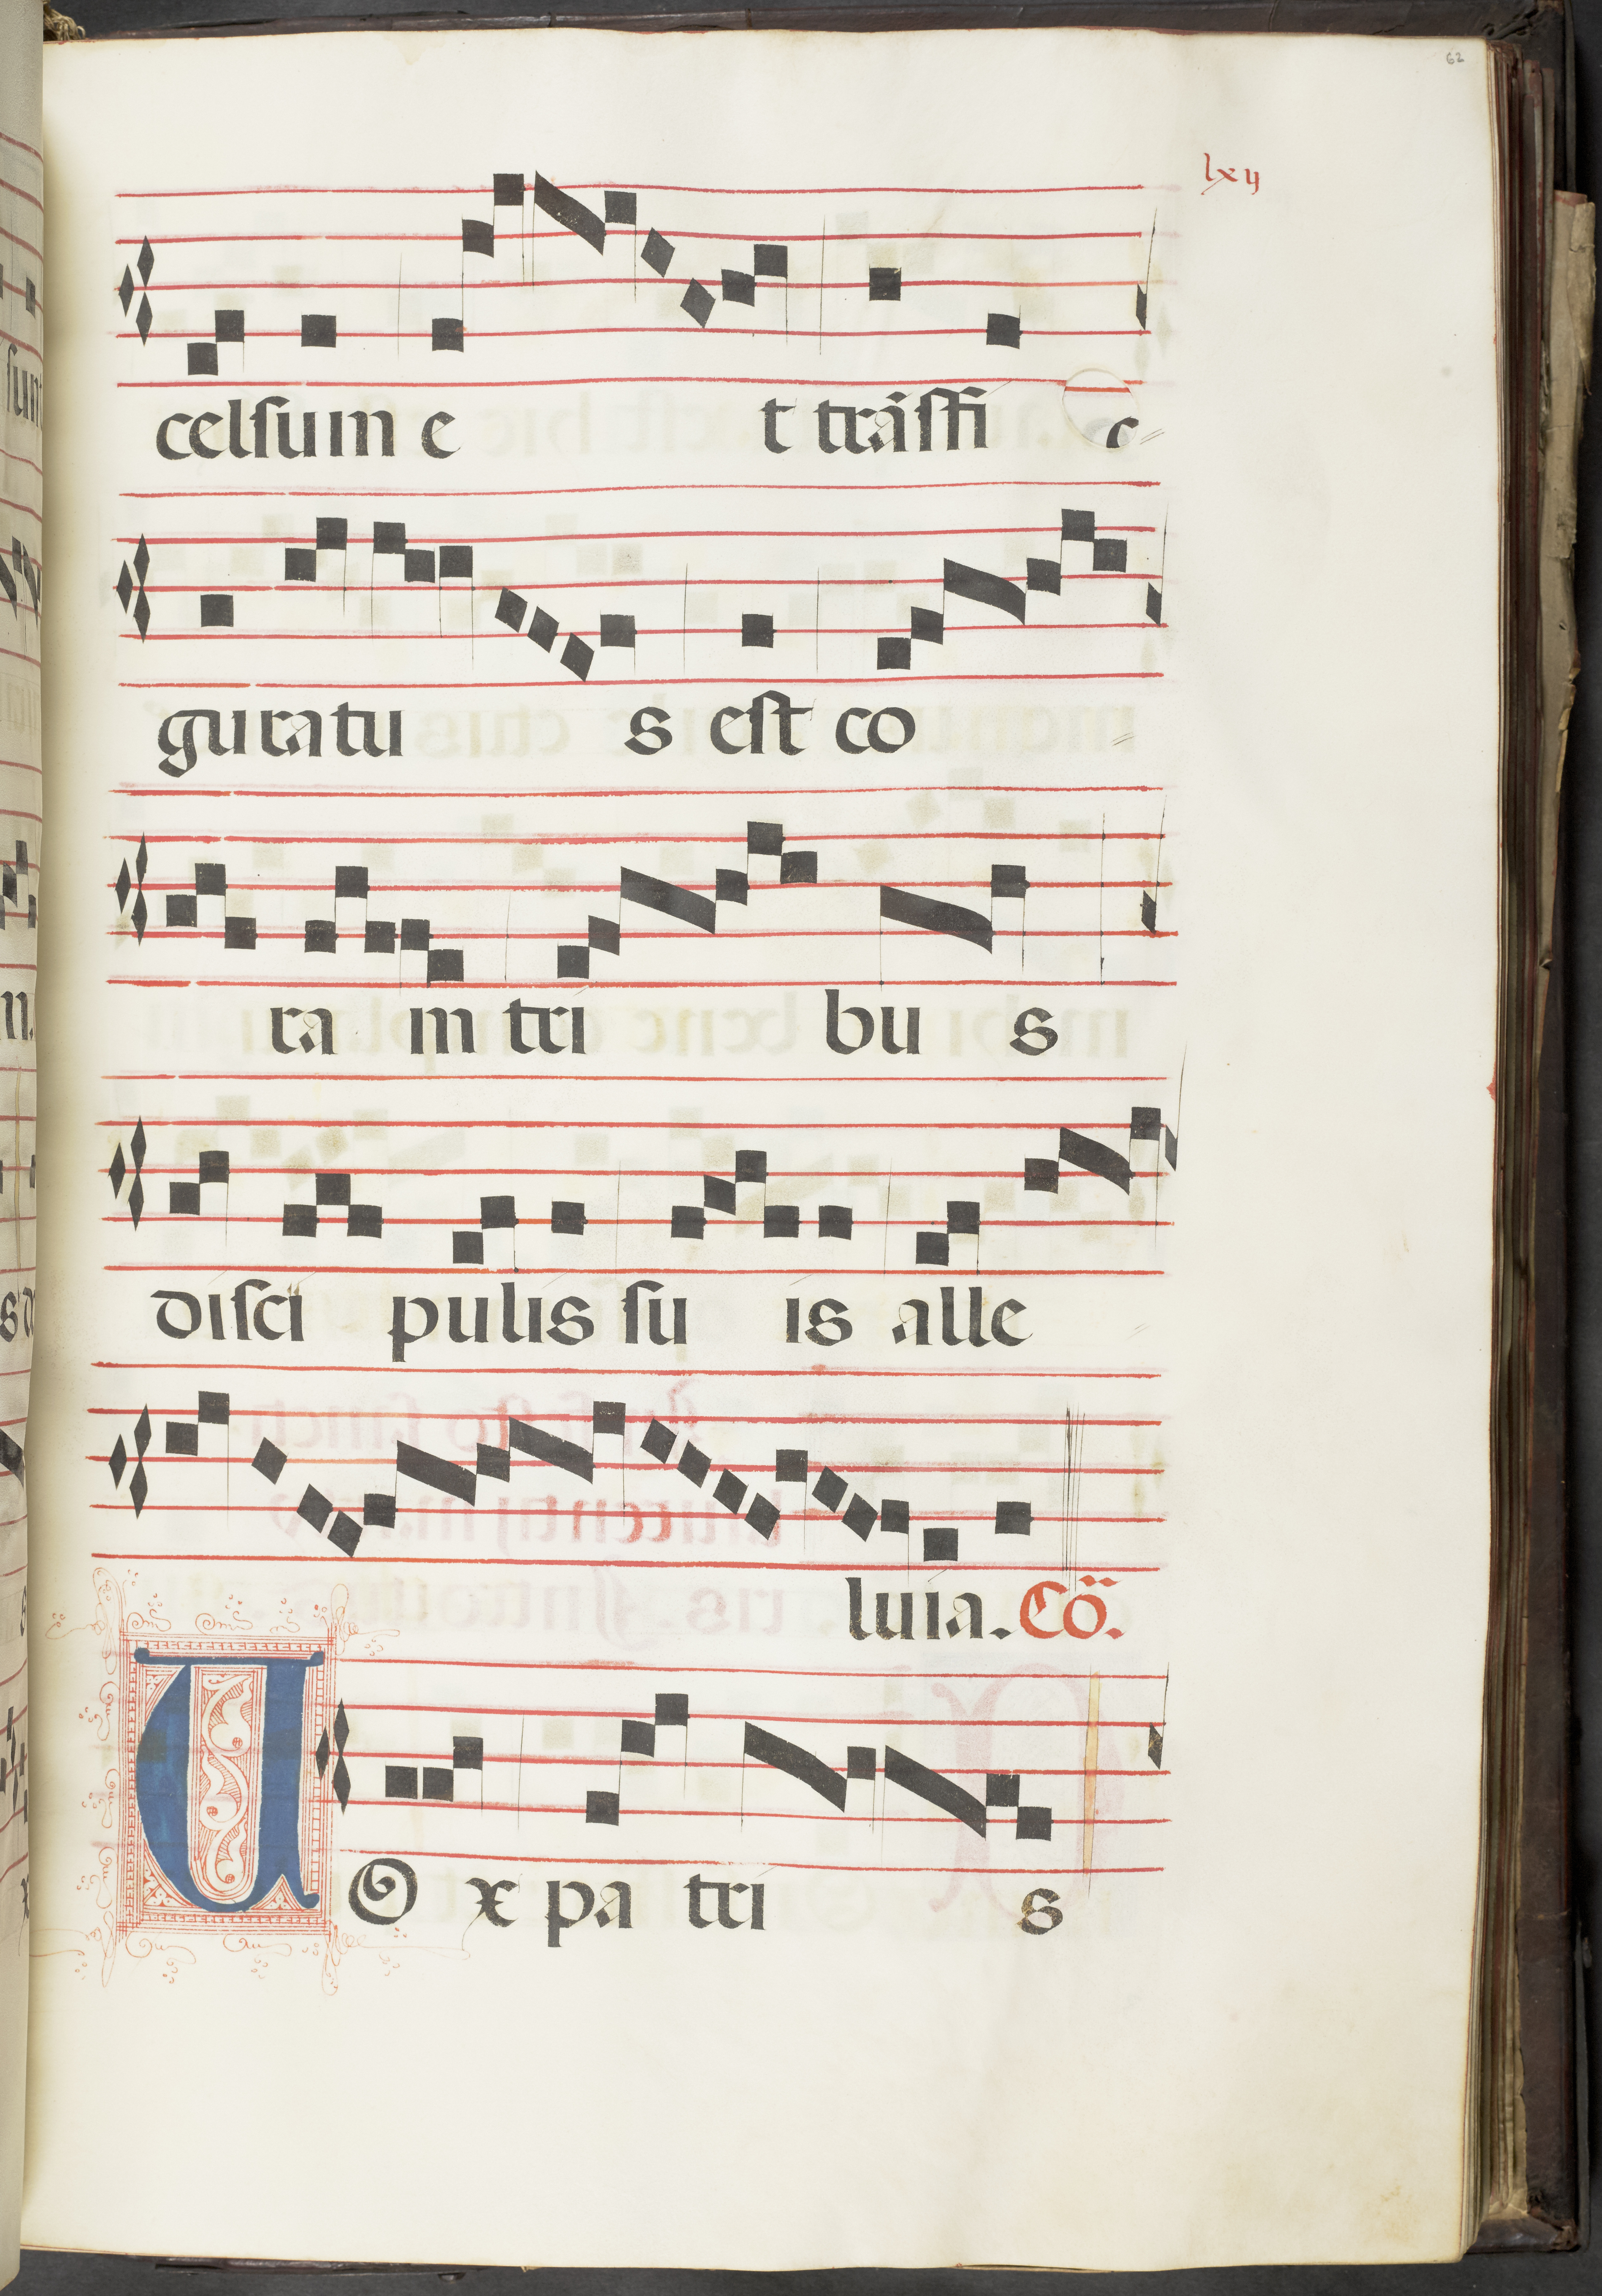 62
lxij
celsum e t trãsfi c
guratu s est co
ra in tri bu s
disci pulis su is alle
luia. Cõ.
UOx patri s